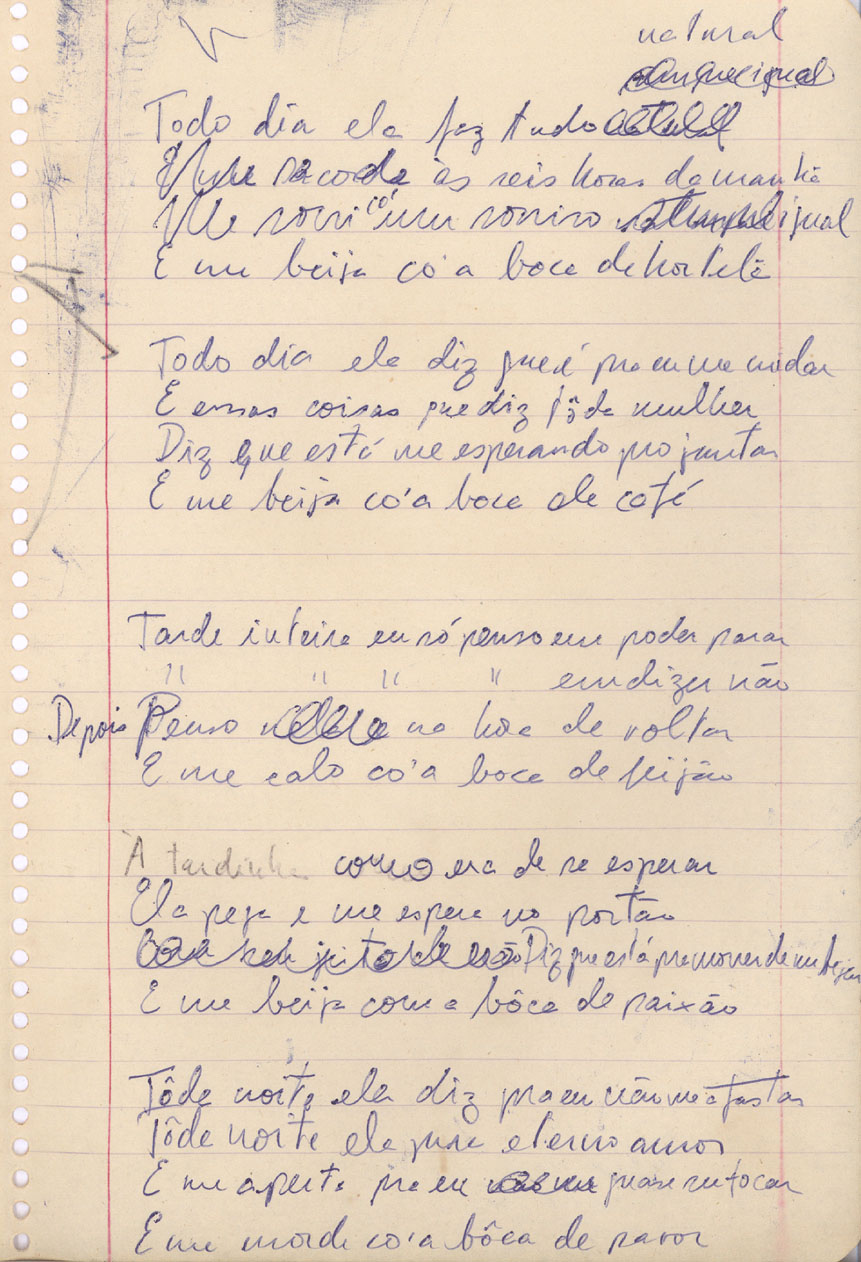 natural
Todo dia ela faz tudo
Me sacode às seis horas da manhã
Me sorri có um sorriso igual
E me beija co'a boca de hortelã
Todo dia ela diz que é pra eu me cuidar
E essas coisas que diz tôda mulher
Diz que está me esperando pro jantar
E me beija co'a boca de café
Tarde inteira eu só penso em poder parar
" " " " em dizer não
Depois Penso na hora de voltar
E me calo co'a boca de feijão
À tardinha como era de se esperar
Ela pega e me espera no portão
Diz que está pra morrer de me beijar
E me beija com a bôca de paixão
Tôda noite ela diz pra eu não me afastar
Tôda noite ela jura eterno amor
E me aperta pra eu quase sufocar
E me morde co'a bôca de pavor